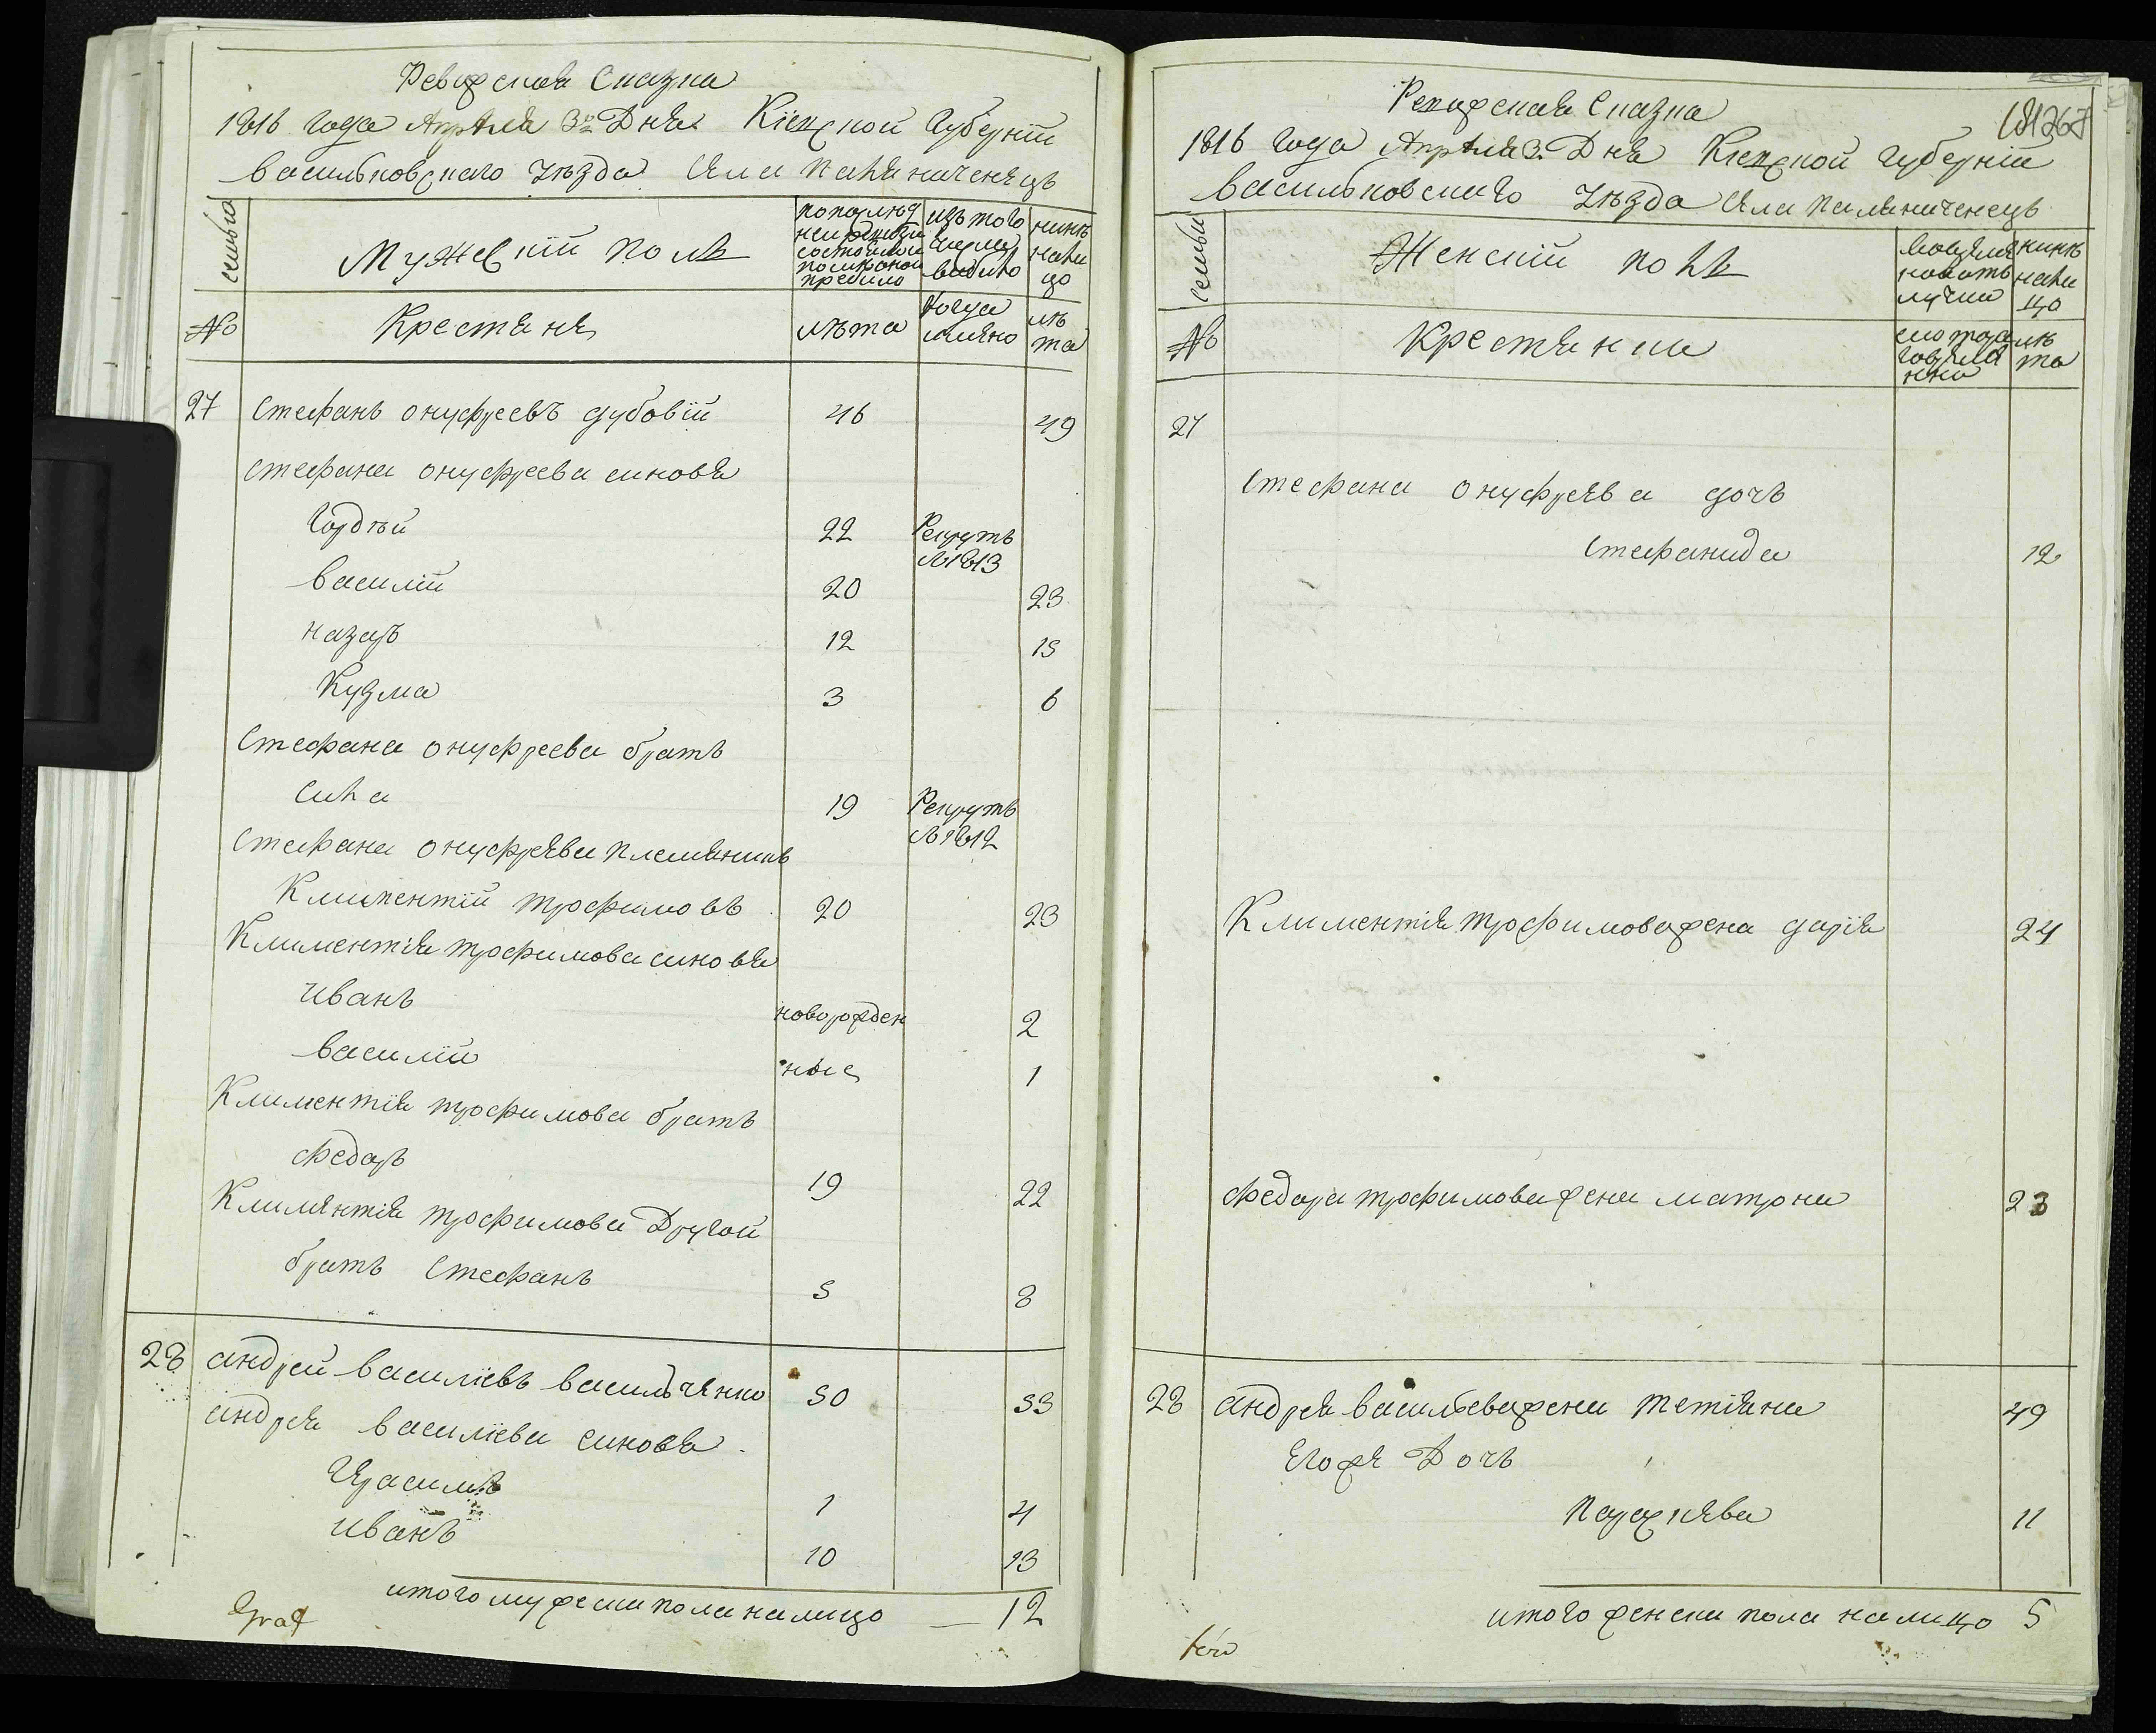 Ревизская Сказка
1816 года Апреля 3го Дня Кіевской Губерніи
васильковскаго Уѣзда села палениченецъ
семьи
Мужескій полъ
по последней ревизіи состояло и после оной прибило
изъ того числа выбило
нинѣ на лицо
№
Крестяня
лѣта
когда имянно
лѣта
27 стефанъ онуфреевъ дубовій 46 49
стефана онуфреева синовя
Гордѣй 22 Рекрутъ
в 1813
василій 20 23
назаръ 12 15
Кузма 3 6
Стефана онуфреева братъ
сила 19 Рекрутъ
в 1812
стефана онуфрѣева племянникъ
Климентій трофимовъ 20 23
Климентія трофимова синовя
иванъ новорожден 2
василій ные 1
Климентія трофимова братъ
федоръ 19 22
Климентія трофимова Другой
братъ Стефанъ 5 8
28 андрей василіевъ васильченко 50 53
андрея василіева синовя
Герасимъ 1 4
иванъ 10 13
итого мужески пола на лицо — 12
Graf
181267
Ревизская Сказка
1816 года Апреля 3. Дня Кіевской губерніи
васильковскаго Уѣзда села палениченецъ
семьи
Женскій полъ
нинѣ на лицо
№
Крестянки
лѣта
27
стефана онуфрева дочъ
стефанида 12
Климентія трофимова жена дарія 24
федора трофимова жена матрона 23
28 андрея васильева жена тетіяна 49
Егоже Дочъ
параскева 11
итого женски пола на лицо 5